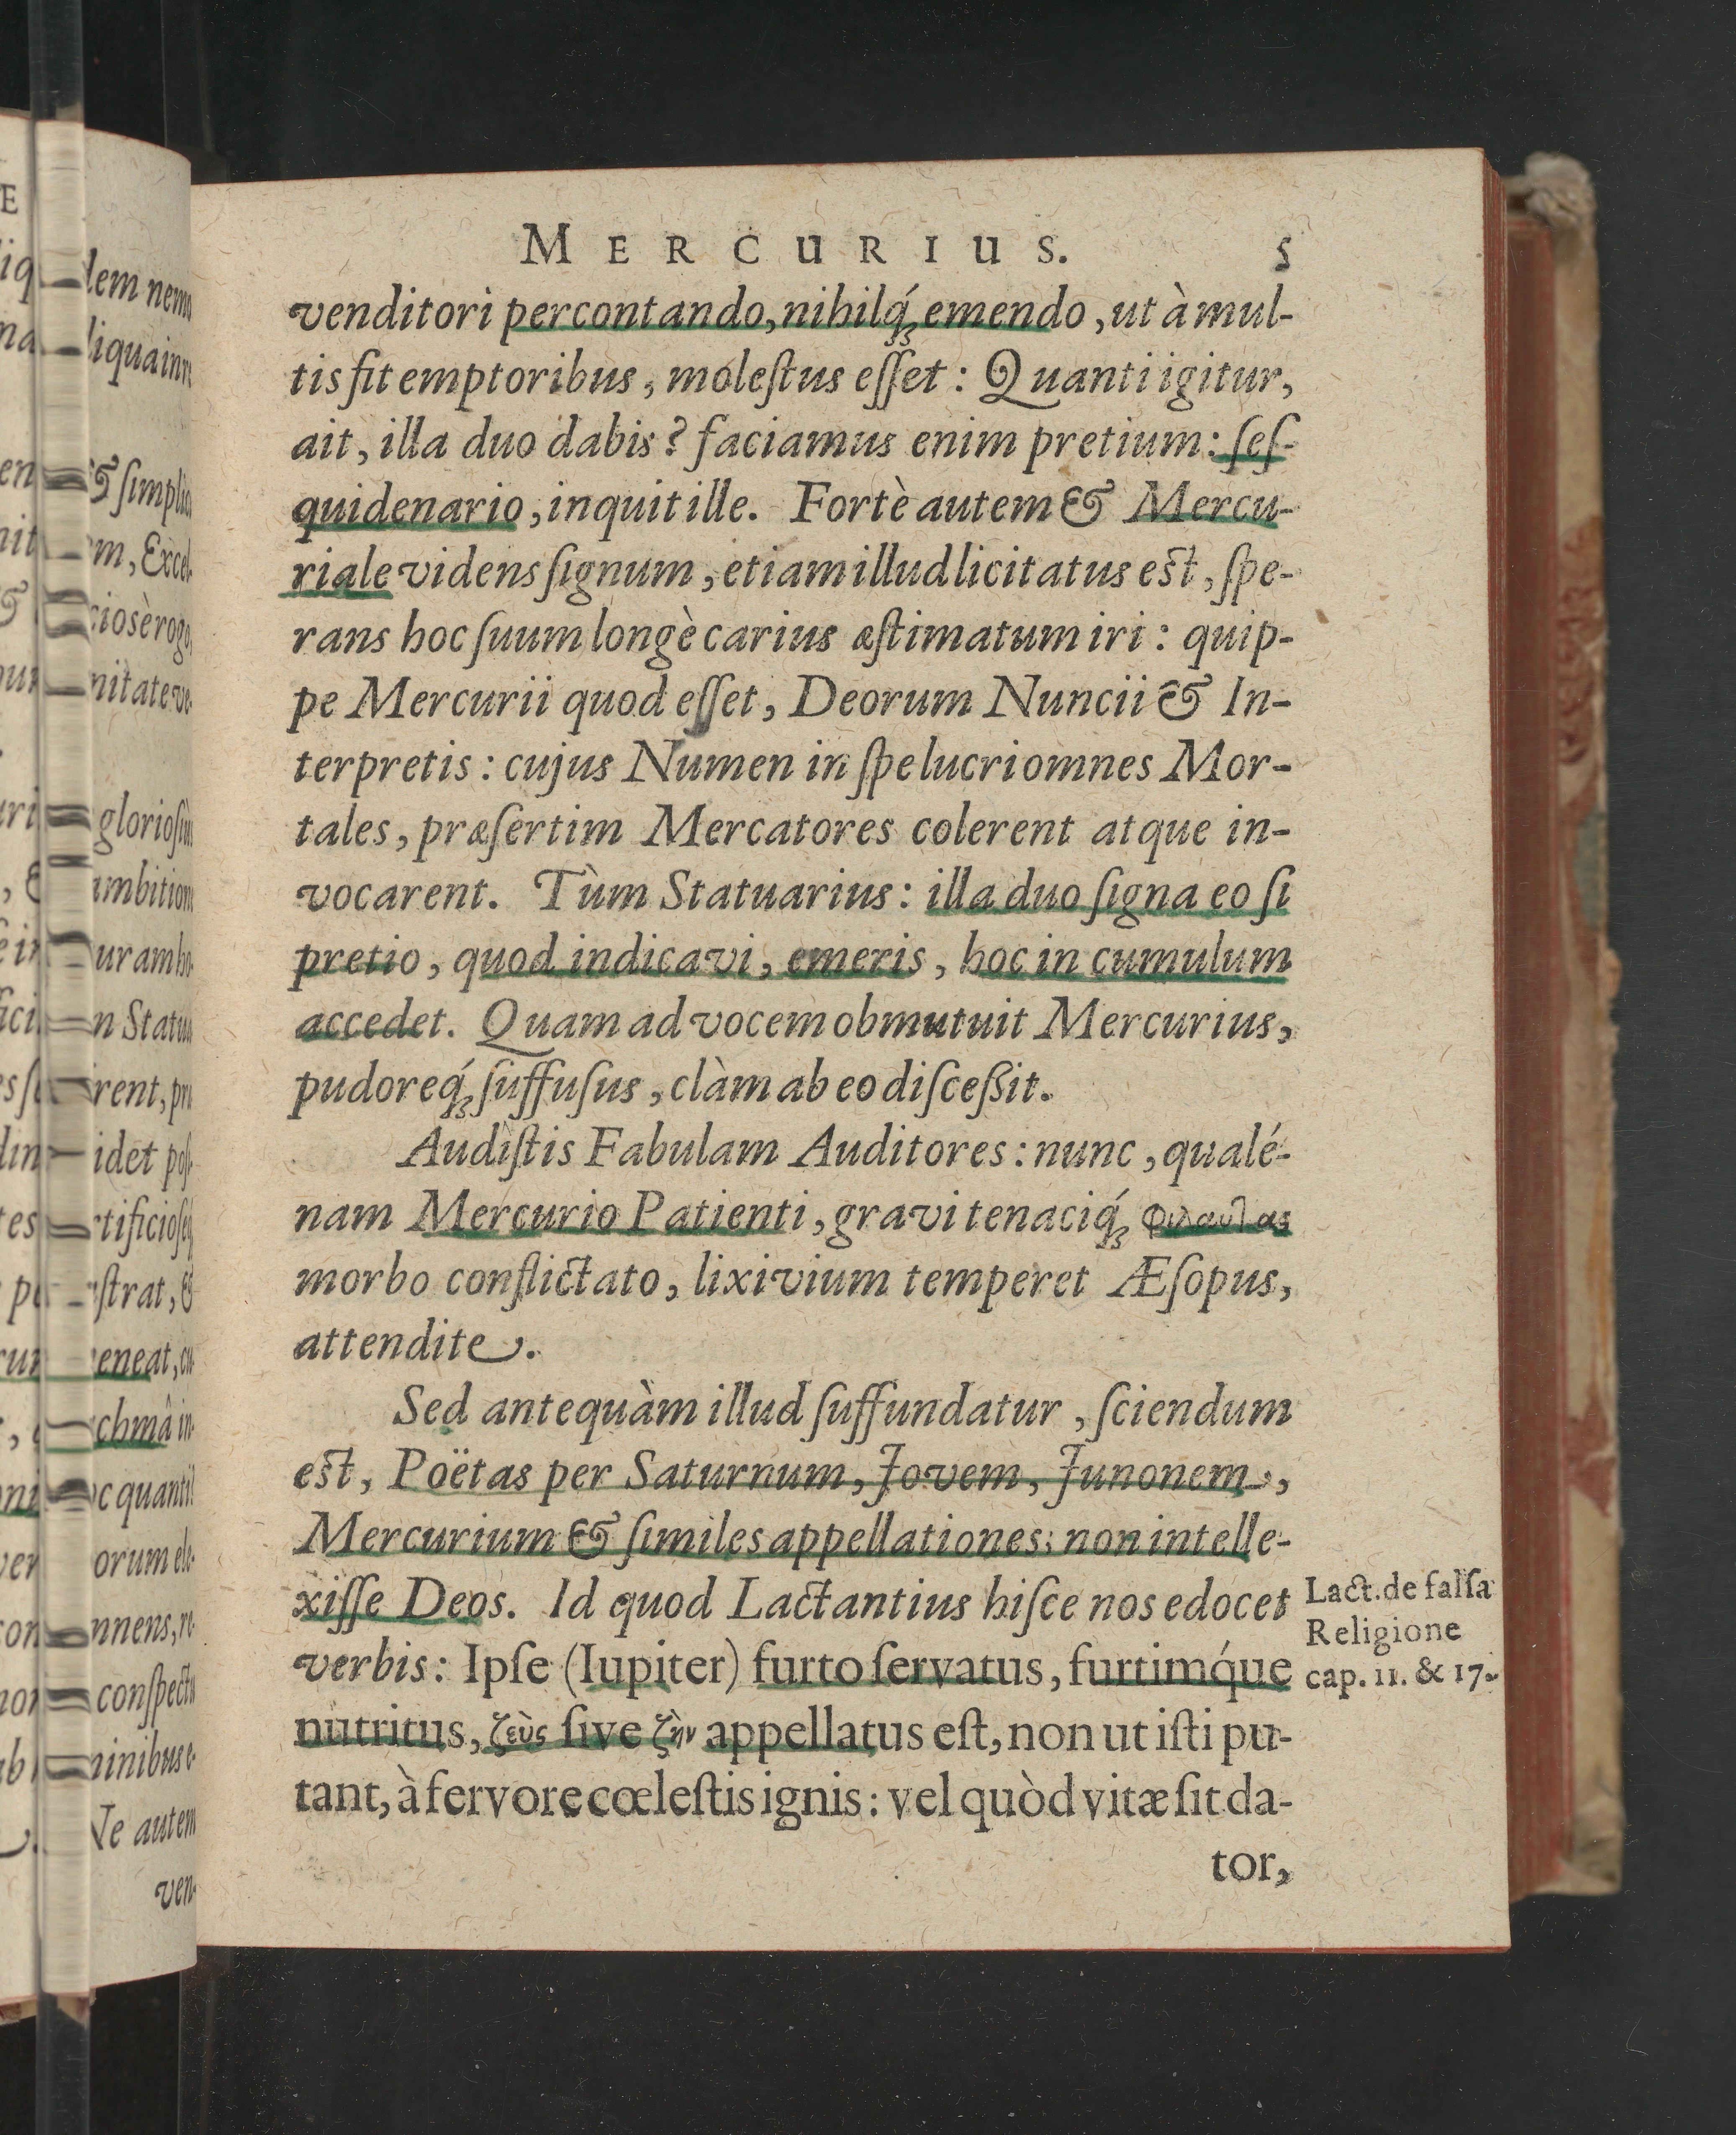 MERCURIUS. 5
venditori percontando, nihilq́; emendo, ut à mul-
tis fit emptoribus, moleſtus eſſet: Quanti igitur,
ait, illa duo dabis? faciamus enim pretium: ſeſ-
quidenario, inquit ille. Fortè autem & Mercu-
riale videns ſignum, etiam illud licitatus eſt, ſpe-
rans hoc ſuum longè carius æſtimatum iri: quip-
pe Mercurii quod eſſet, Deorum Nuncii & In-
terpretis: cujus Numen in ſpe lucri omnes Mor-
tales, præſertim Mercatores colerent atque in-
vocarent. Tùm Statuarius: illa duo ſigna eo ſi
pretio, quod indicavi, emeris, hoc in cumulum
accedet. Quam ad vocem obmutuit Mercurius,
pudoreq́; ſuffuſus, clàm ab eo diſceſſit.
Audiſtis Fabulam Auditores: nunc, qualé-
nam Mercurio Patienti, gravi tenaciq́;
morbo conflictato, lixivium temperet Æſopus,
attendite.
Sed antequàm illud ſuffundatur, ſciendum
eſt, Poëtas per Saturnum, Jovem, Junonem,
Mercurium & ſimiles appellationes; non intelle-
xiſſe Deos. Id quod Lactantius hiſce nos edocet
verbis: Ipſe (Iupiter) furto ſervatus, furtimq́ue
nutritus, ζεὺς ſive ζὴν appellatus eſt, non ut iſti pu-
tant, à fervore cœleſtis ignis: vel quòd vitæ ſit da-
tor,
Lact. de falſa
Religione
cap. 11. & 17.